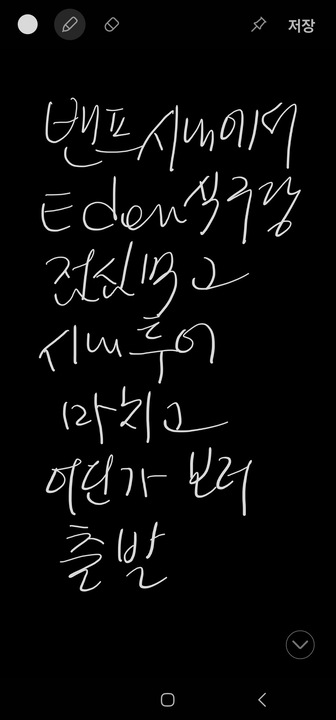 저장
밴프시내에서
Eden식구랑
점심먹고
시내투어
마치고
어딘가 보러
출발